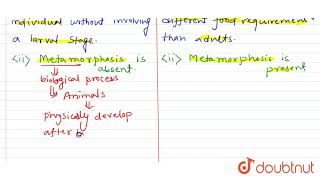 individual without involving
a larval stage.
<ii> Metamorphosis is
absent.
biological process
Animals
physically develop
after
different food requirement
than adults.
<ii> Metamorphosis is
present
doubtnut